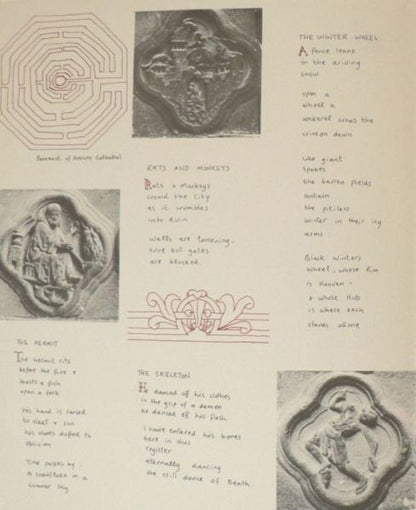 Pavement of Amiens Cathedral
RATS AND MONKEYS
Rats & Monkeys
crowd the City
as it crumbles
into Ruin
Walls are loosening.
but gates
are blocked.
THE HERMIT
The hermit sits
before the fire &
roasts a fish
upon a fork
his hand is cursed
his shoes
oblivion
Time passes by
a snowflake in a
summer sky
THE SKELETON
He danced off his clothes
in the grip of a demon
he danced off his flesh
I have entered his bones
here in this
register
eternally dancing
the still dance of Death
THE WINTER WHEEL
A fence leans
in the driving
snow
upon a
wheel a
cockerel crows the
crimson dawn
Like giant
spokes
the barren fields
contain
the pitiless
winter in their icy
arms :
Black Winters
wheel, whose Rim
is Heaven -
& whose Hub
is where each
stands alone